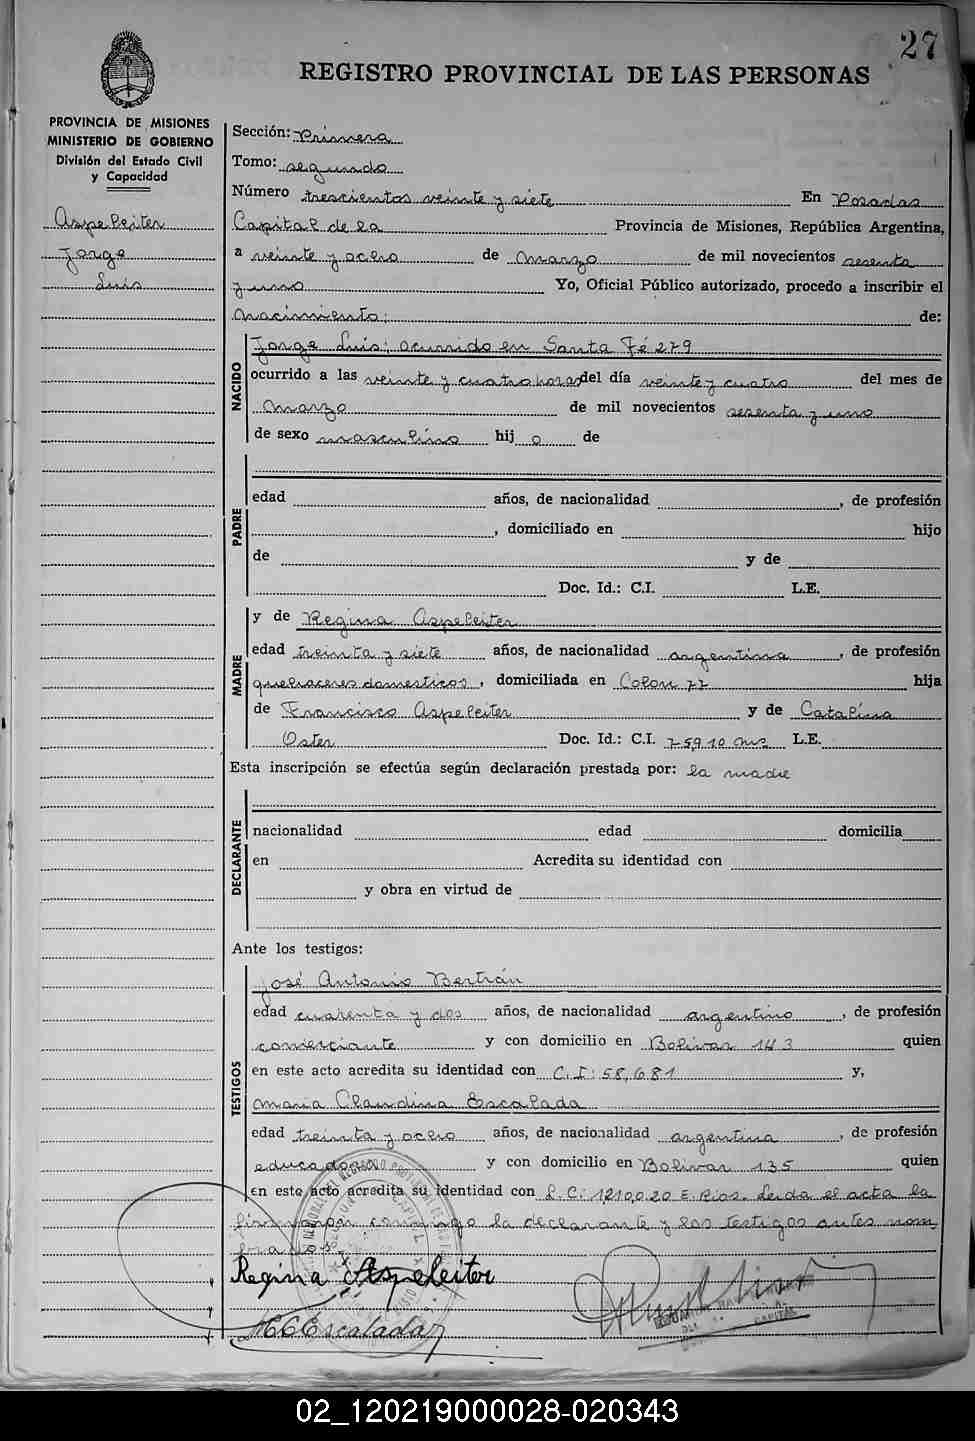 27
REGISTRO PROVINCIAL DE LAS PERSONAS
PROVINCIA DE MISIONES
MINISTERIO DE GOBIERNO
División del Estado Civil
y Capacidad
Aspeleiter
Jorge
Luis
Sección: Primera
Tomo: segundo
Número trescientos veinte y siete En Posadas
Capital de la Provincia de Misiones, República Argentina,
a veinte y ocho de Marzo de mil novecientos sesenta
y uno Yo, Oficial Público autorizado, procedo a inscribir el
nacimiento; de:
NACIDO
Jorge Luis; ocurrido en Santa Fé 279
ocurrido a las veinte y cuatro horas del día veinte y cuatro del mes de
Marzo de mil novecientos sesenta y uno
de sexo masculino hij o de
PADRE
edad años, de nacionalidad , de profesión
, domiciliado en hijo
de y de
Doc. Id.: C.I. L.E.
MADRE
y de Regina Aspeleiter
edad treinta y siete años, de nacionalidad argentina , de profesión
quehaceres domesticos , domiciliada en Colon 77 hija
de Francisco Aspeleiter y de Catalina
Oster Doc. Id.: C.I. 75910 Mnes L.E.
Esta inscripción se efectúa según declaración prestada por: la madre
DECLARANTE
nacionalidad edad domicilia
en Acredita su identidad con
y obra en virtud de
Ante los testigos:
TESTIGOS
José Antonio Bertrán
edad cuarenta y dos años, de nacionalidad argentino , de profesión
comerciante y con domicilio en Bolivar 143 quien
en este acto acredita su identidad con C.I: 58,681 y,
Maria Claudina Escalada
edad treinta y ocho años, de nacionalidad argentina , de profesión
educadora y con domicilio en Bolivar 135 quien
en este acto acredita su identidad con L.C: 1210,020 E. Rios. Leida el acta la
firmaron conmigo la declarante y los testigos antes nom
brados
Regina Aspeleiter
MCEscalada
CAPITAL
02_120219000028-020343